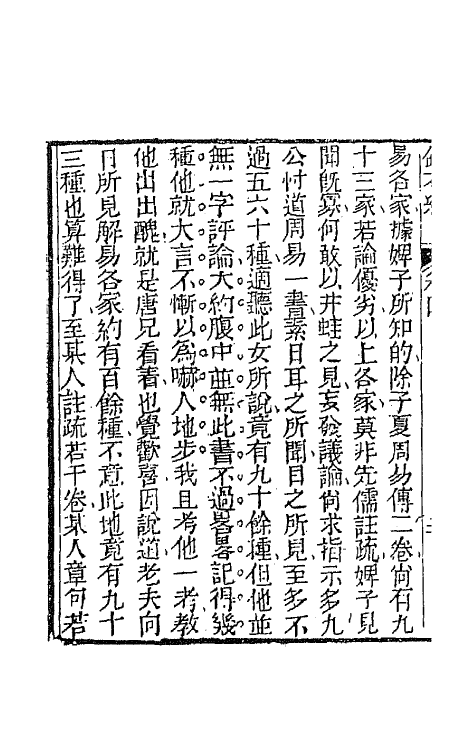 易各家據婢子所知的除子夏周易傳二卷尚有九
十三家若論優劣以上各家莫非先儒註疏婢子見
聞既寡何敢以井蛙之見妄發議論尚求指示多九
公忖道周易一書素日耳之所聞目之所見至多不
過五六十種適聽此女所說竟有九十餘種但他並
無一字評論大約腹中並無此書不過畧畧記得幾
種他就大言不慚以爲嚇人地步我且考他一考教
他出出醜就是唐兄看著也覺歡喜因說道老夫向
日所見解易各家約有百餘種不意此地竟有九十
三種也算難得了至某人註疏若干卷某人章句若